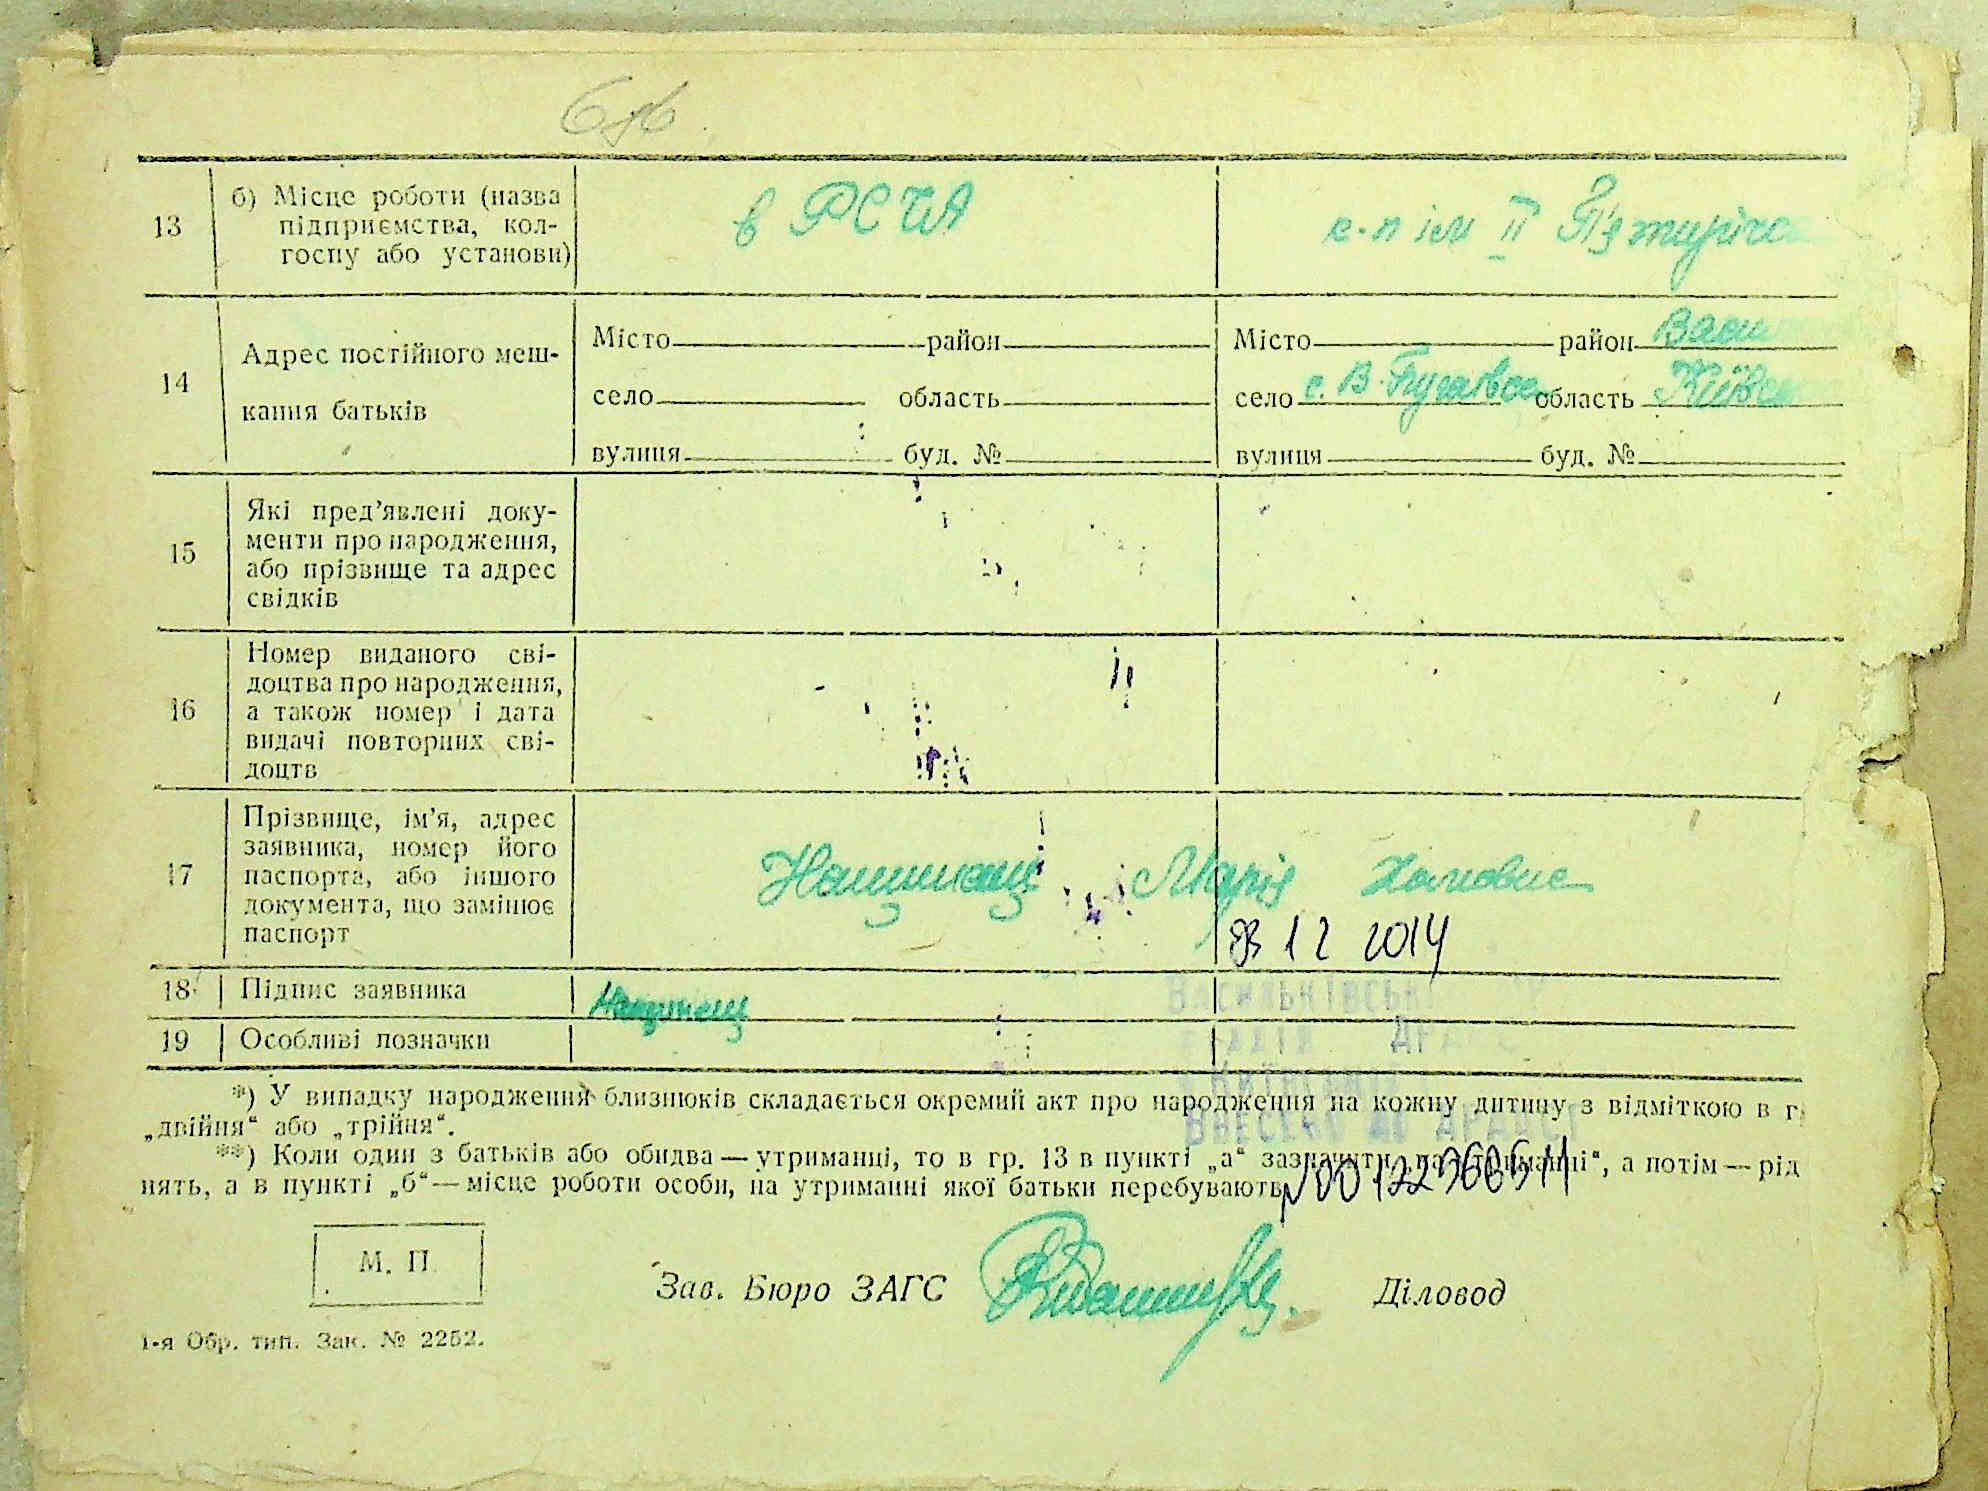 13
б) Місце роботи (назва
підприємства, кол-
госпу або установи)
в РСЧА
с-п ім ІІ П'ятирічк
14
Адрес постійного меш-
кання батьків
Місто район
село область
вулиця буд. №
Місто район Васи
село с. В. область Київськ
вулиця буд. №
15
Які пред'явлені доку-
менти про народження,
або прізвище та адрес
свідків
16
Номер виданого сві-
доцтва про народження,
а також номер і дата
видачі повторних сві-
доцтв
17
Прізвище, ім'я, адрес
заявника, номер його
паспорта, або іншого
документа, що замінює
паспорт
Марія
12 2014
18 Підпис заявника
19 Особливі позначки
Васильківськ
ДР
Внесено до
*) У випадку народження близнюків складається окремий акт про народження на кожну дитину з відміткою в г
„двійня“ або „трійня“.
**) Коли один з батьків або обидва — утриманці, то в гр. 13 в пункті „а“ зазначити „на утриманні“, а потім — рід
нять, а в пункті „б“ — місце роботи особи, на утриманні якої батьки перебувають.
М. П.
Зав. Бюро ЗАГС
Діловод
1-я Обр. тип. Зак. № 2252.